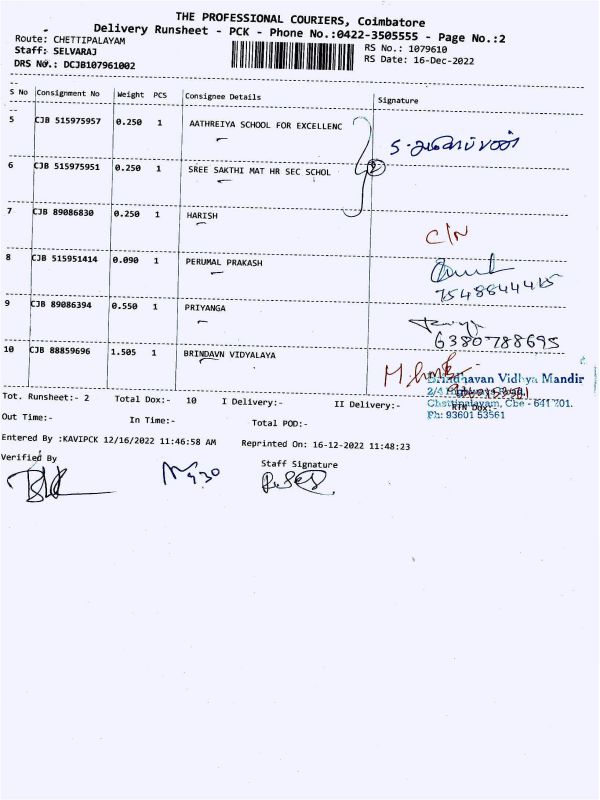 THE PROFESSIONAL COURIERS, Coimbatore
Delivery Runsheet - PCK - Phone No.:0422-3505555 - Page No.:2
Route: CHETTIPALAYAM
RS No.: 1079610
Staff: SELVARAJ
RS Date: 16-Dec-2022
DRS No.: DCJB107961002
S No Consignment No Weight PCS Consignee Details Signature
5 CJB 515975957 0.250 1 AATHREIYA SCHOOL FOR EXCELLENC
6 CJB 515975951 0.250 1 SREE SAKTHI MAT HR SEC SCHOL 2
7 CJB 89086830 0.250 1 HARISH
C/N
8 CJB 515951414 0.090 1 PERUMAL PRAKASH
7548844415
9 CJB 89086394 0.550 1 PRIYANGA
6380788695
10 CJB 88859696 1.505 1 BRINDAVN VIDYALAYA
Brindhavan Vidhya Mandir
Tot. Runsheet:- 2 Total Dox:- 10 I Delivery:- II Delivery:- RTN Dox:-
Chettipalayam, Cbe - 641 201.
Ph: 93601 53561
Out Time:- In Time:- Total POD:-
Entered By :KAVIPCK 12/16/2022 11:46:58 AM Reprinted On: 16-12-2022 11:48:23
Verified By Staff Signature